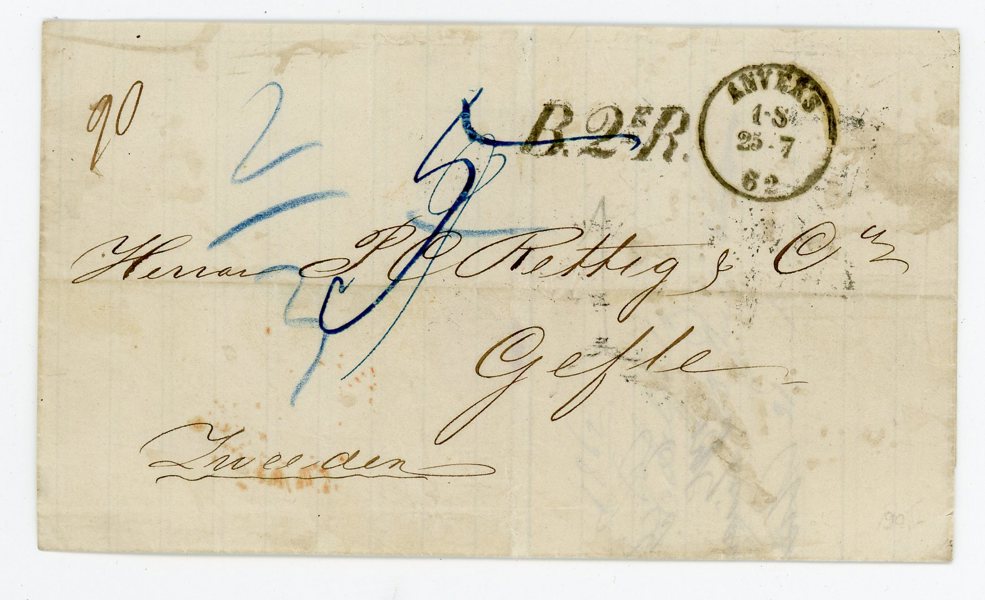 90
B. 2ᴱ R.
ANVERS
1-S
25-7
62
Herrar P C Rettig & Cⁿⁱ
Gefle
Zweeden